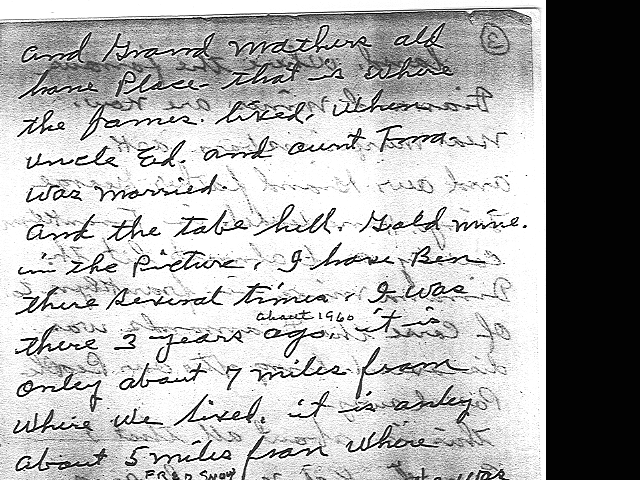 2
and Grand mothers old
home Place- that is where
the fames. lived, When
uncle Ed. and aunt
was married
And the table hill. Gold mine.
in the Picture, I have Ben
there several times, I was
about 1960
there 3 years ago, it is
only about 7 miles from
where we lived. it is only
about 5 miles from where
FRED SNOW
was